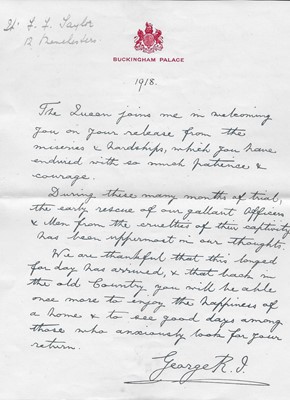 Lt. F. F. Taylor
R Manchesters
BUCKINGHAM PALACE
1918.
The Queen joins me in welcoming
you on your release from the
miseries & hardships, which you have
endured with so much patience &
courage.
During these many months of trial,
the early rescue of our gallant Officers
& Men from the cruelties of their captivity
has been uppermost in our thoughts.
We are thankful that this longed
for day has arrived, & that back in
the old Country you will be able
once more to enjoy the happiness of
a home & to see good days among
those who anxiously look for your
return.
George R.I.